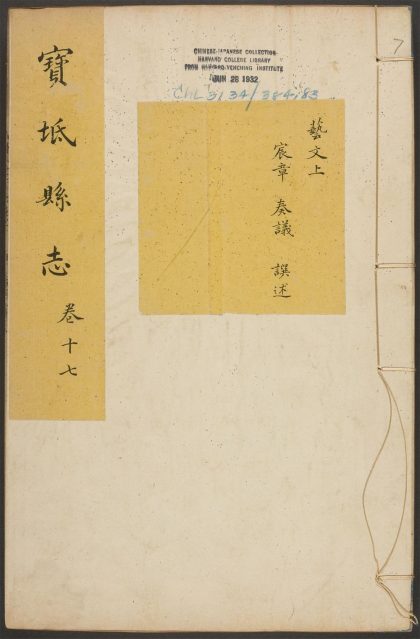 寶坻縣志 卷十七
藝文上
宸章 奏議 譔述
CHINESE-JAPANESE COLLECTION
HARVARD COLLEGE LIBRARY
FROM HARVARD-YENCHING INSTITUTE
JUN 28 1932
7